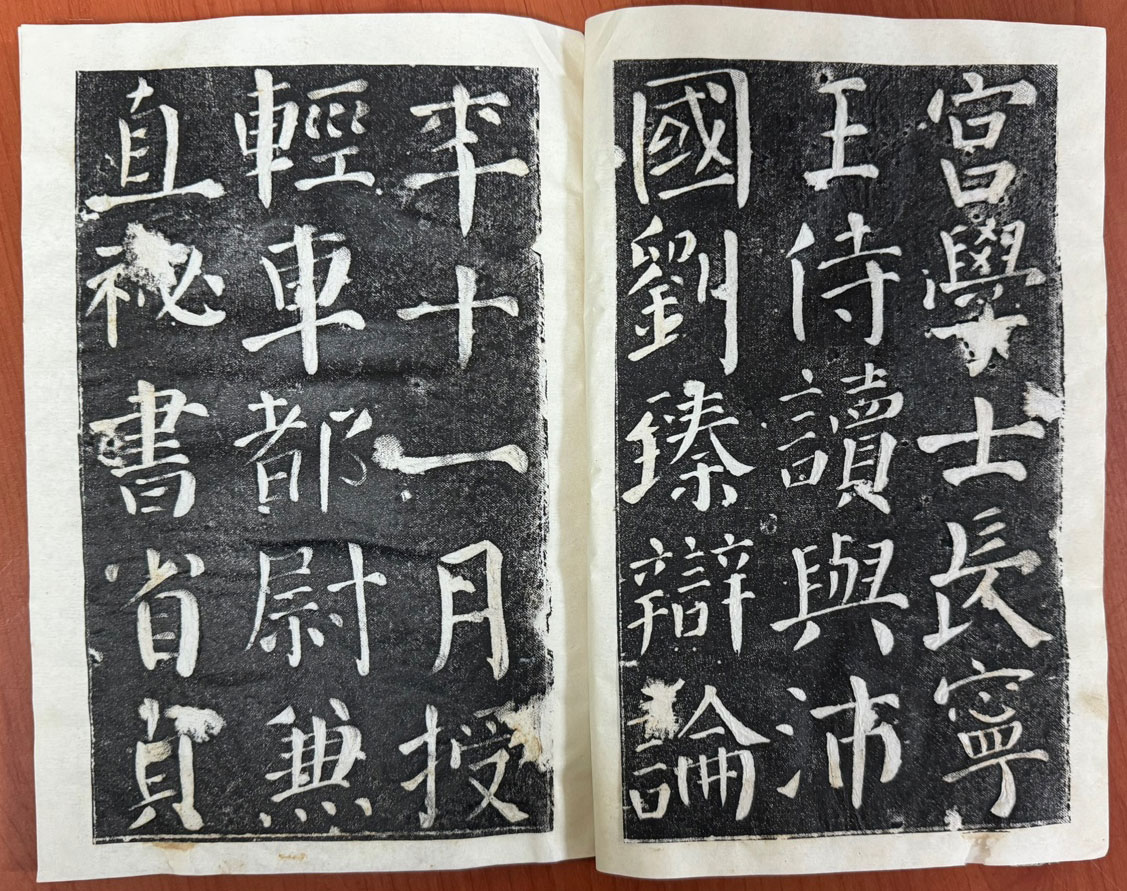 宮學士長寧
王侍讀與沛
國劉臻辯論
年十一月授
輕車都尉兼
直祕書省貞